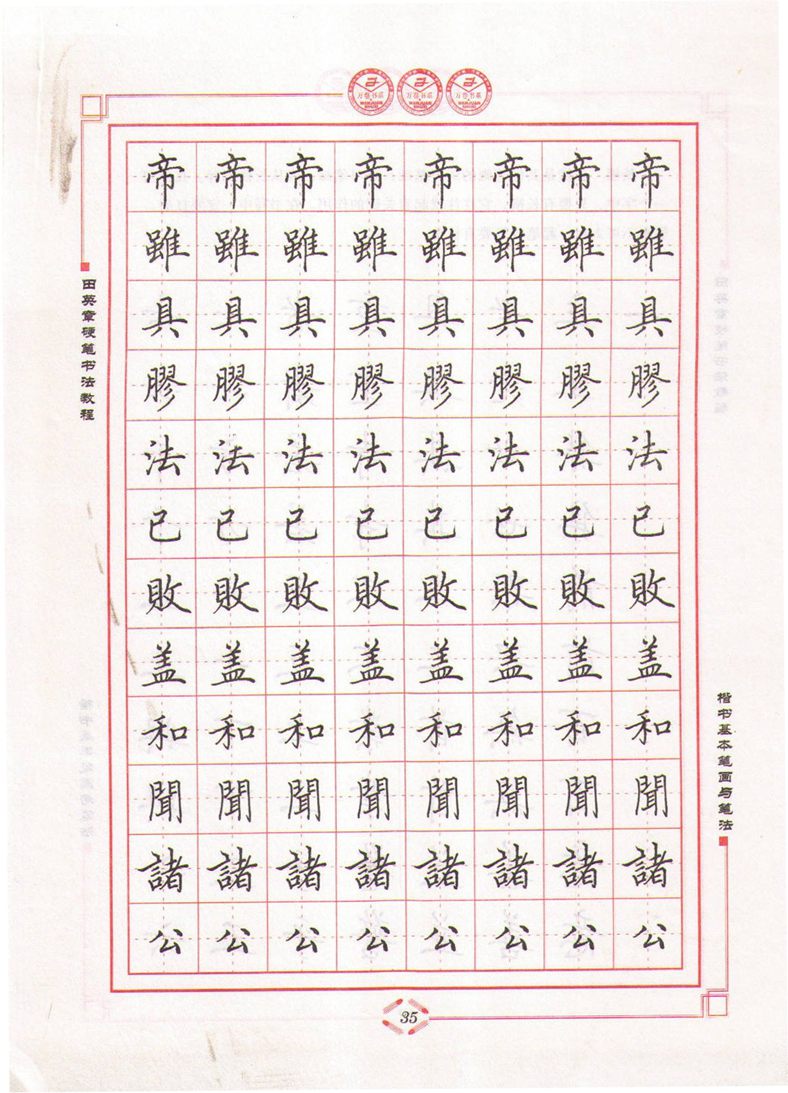 万卷书系 万卷书系 万卷书系
WANJUAN SHUXI WANJUAN SHUXI WANJUAN SHUXI
田英章硬笔书法教程
帝 帝 帝 帝 帝 帝 帝 帝
雖 雖 雖 雖 雖 雖 雖 雖
具 具 具 具 具 具 具 具
膠 膠 膠 膠 膠 膠 膠 膠
法 法 法 法 法 法 法 法
已 已 已 已 已 已 已 已
敗 敗 敗 敗 敗 敗 敗 敗
盖 盖 盖 盖 盖 盖 盖 盖
和 和 和 和 和 和 和 和
聞 聞 聞 聞 聞 聞 聞 聞
諸 諸 諸 諸 諸 諸 諸 諸
公 公 公 公 公 公 公 公
楷书基本笔画与笔法
35